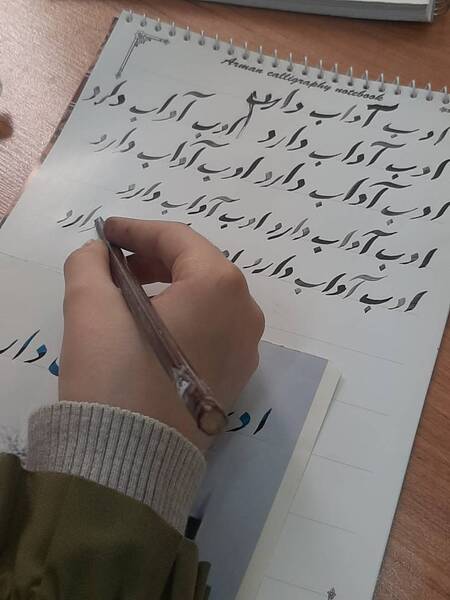 Arman calligraphy notebook
ادب آداب دارد
ادب آداب دارد ادب آداب دارد
ادب آداب دارد ادب آداب دارد
ادب آداب دارد ادب آداب دارد
ادب آداب دارد دارد